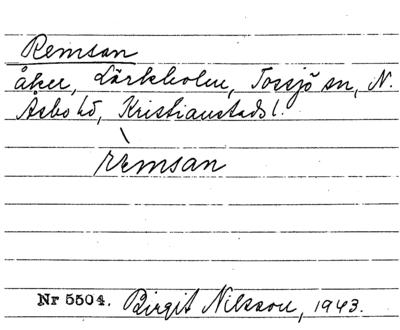 Remsan
åker, Lärkholm, Tossjö sn, N.
Åsbo hd, Kristianstads l.
remsan
Nr 5504. Birgit Nilsson, 1943.